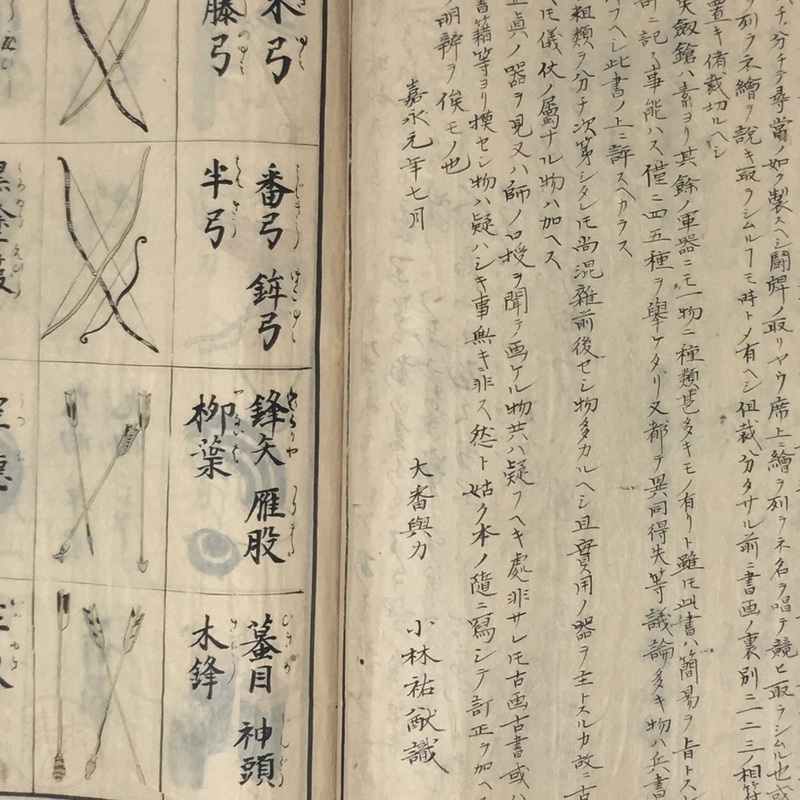 ハチ分チテ尋常ノ如ク製スヘシ闘牌ノ取リヤウ席上ニ繪ヲ列ラネ名ヲ唱テ競ヒ取ラシム也或
ヲ列ラネ繪ヲ説キ取ラシムルーモ時トノ有ヘシ但裁分タサル前ニ書画ノ裏別ニ一二三ノ相符
置キ備裁切ルヘシ
矢剱鎗ハ素ヨリ其餘ノ軍器ニモ一物ニ種類甚多キモノ有リト雖モ此書ハ簡易ヲ旨トス
許ニ記ス事能ハス僅ニ四五種ヲ舉ケタリ又都テ異同得失等議論多キ物ハ兵書
フヘシ此書ノ上ニ評スヘカラス
粗類ヲ分チ次第シタレモ尚混雜前後セシ物多カルヘシ且實用ノ器ヲ主トスルカ故ニ古
ヘモ儀仗ノ属ナル物ハ加ヘス
正眞ノ器ヲ見又ハ師ノ口授ヲ聞テ画ケル物共ハ疑フヘキ處非サレモ古画古書或ハ
書籍等ヨリ模セシ物ハ疑ハシキ事無キニ非ス然ト姑ク本ノ隨ニ寫シテ訂正ヲ加ヘス
明辨ヲ俟モノ也
嘉永元年七月
大番與力 小林祐猷識
木弓
藤弓
番弓 鉾弓
半弓
鋒矢 雁股
柳葉
蟇目 神頭
木鋒